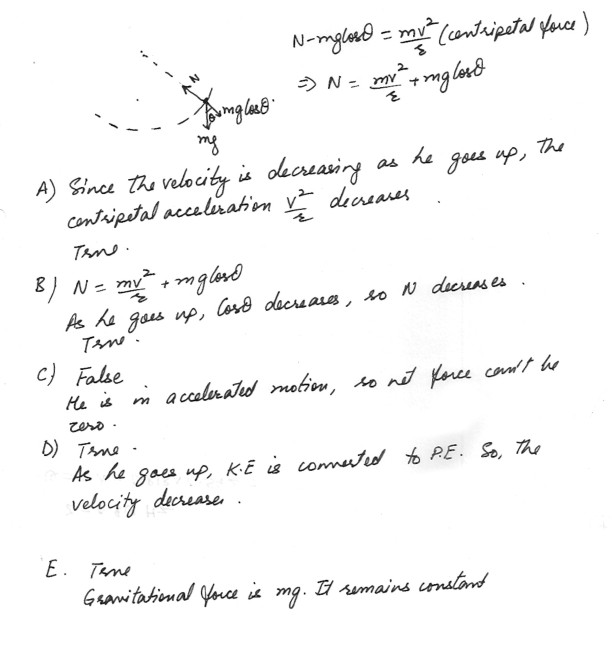 N - mg cosθ = mv²/r (centripetal force)
⇒ N = mv²/r + mg cosθ
N
θ
mg cosθ
mg
A) Since the velocity is decreasing as he goes up, the
centripetal acceleration v²/r decreases
True.
B) N = mv²/r + mg cosθ
As he goes up, Cosθ decreases, so N decreases.
True.
C) False
He is in accelerated motion, so net force can't be
zero.
D) True.
As he goes up, K.E is converted to P.E. So, the
velocity decreases.
E. True
Gravitational force is mg. It remains constant